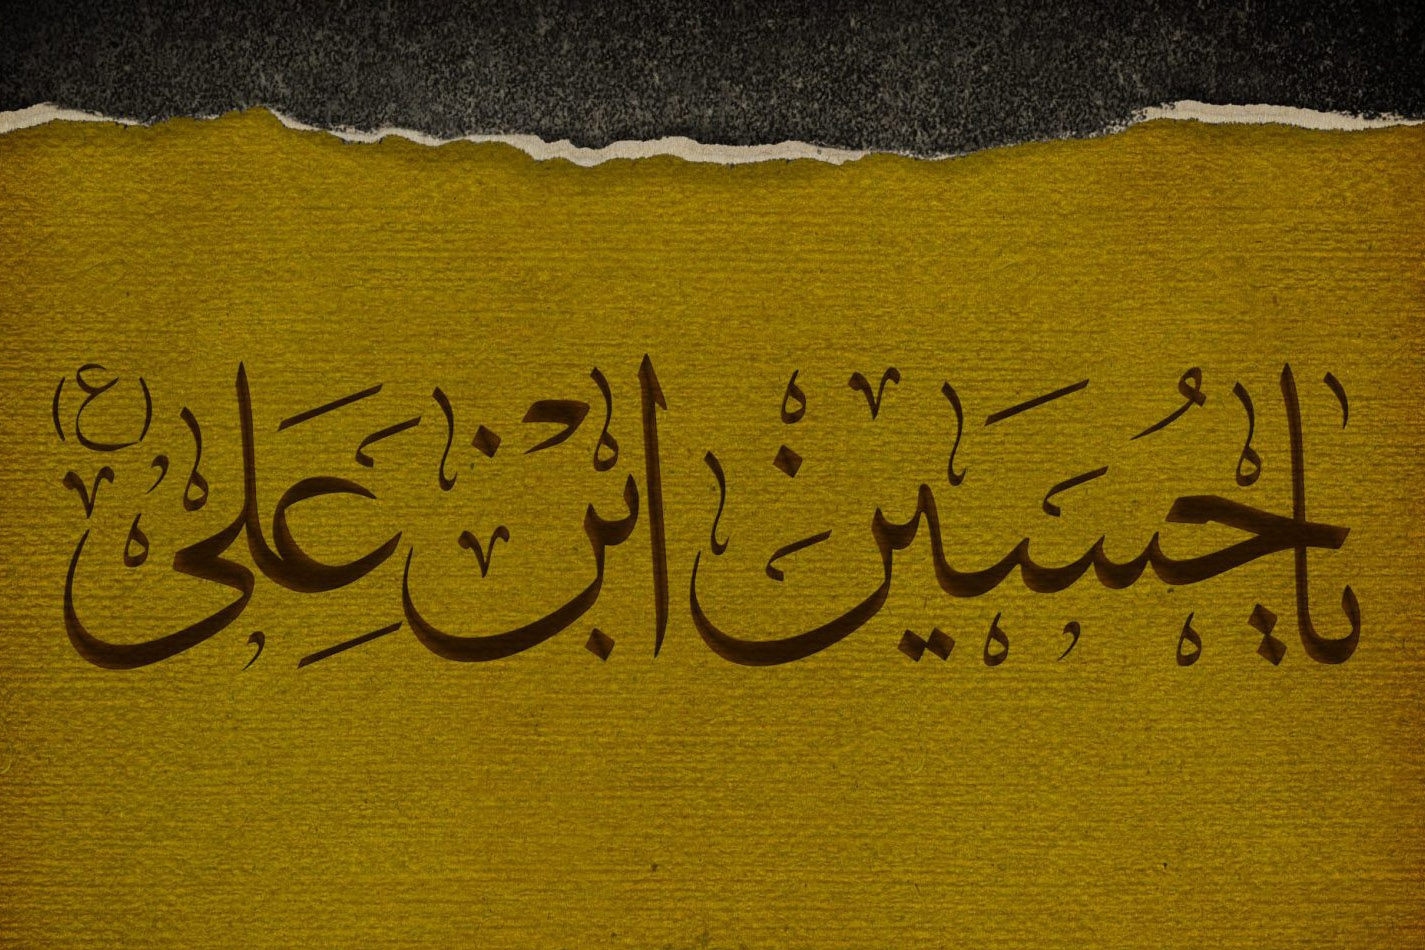 یا حُسَین ابن عَلِی (ع)